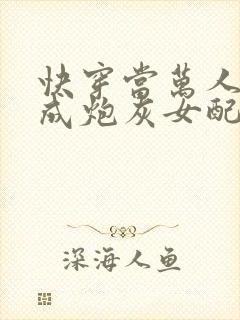 快穿當萬人
成炮灰女配
深海人鱼